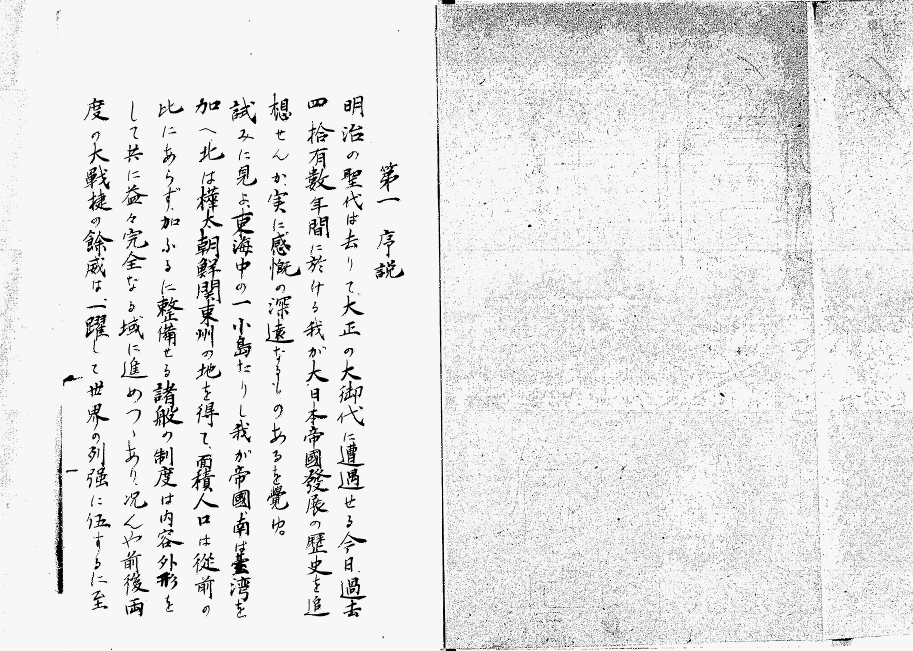 第一 序説
明治の聖代は去りて、大正の大御代に遭遇せる今日、過去
四拾有数年間に於ける我が大日本帝國發展の歴史を追
想せんか実に感慨の深遠なるものあるを覺ゆ。
試みに見よ、東海中の一小島たりし我が帝國、南は臺湾を
加へ北は樺太、朝鮮、関東州の地を得て、面積人口は從前の
比にあらず、加ふるに整備せる諸般の制度は内容外形を
して共に益々完全なる域に進めつゝあり、况んや前後両
度の大戦捷の餘威は、一躍して世界の列强に伍するに至